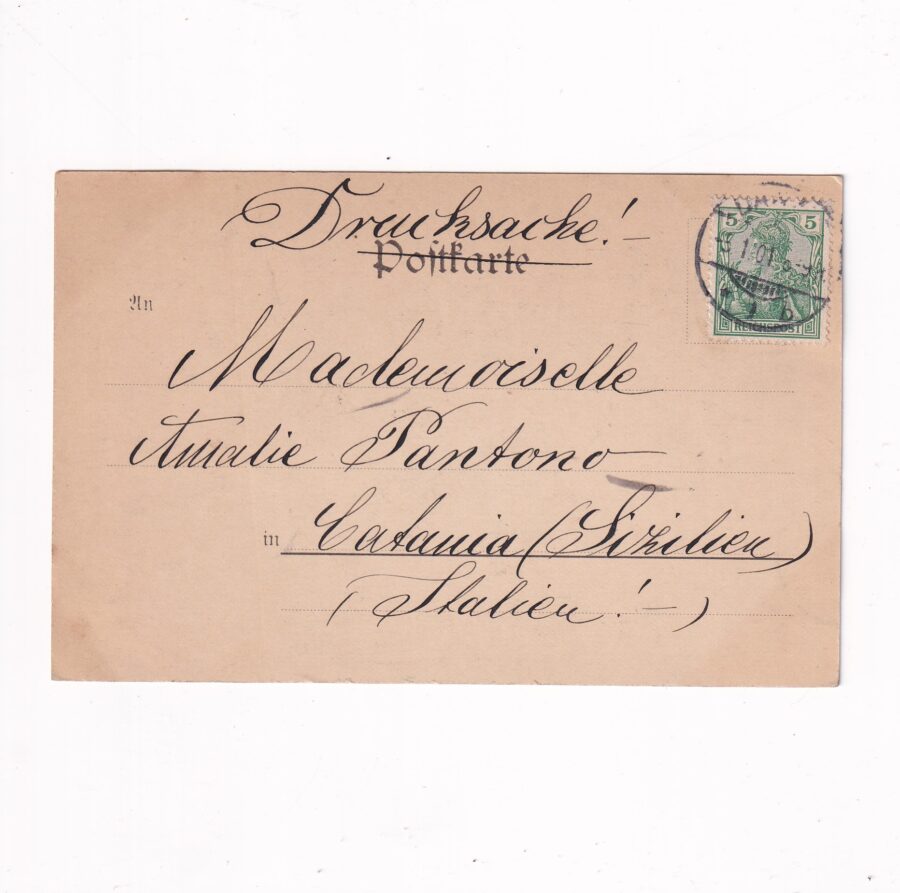 Drucksache! –
Postkarte
5 5
REICHSPOST
1.01
b
An
Mademoiselle
Amalie Pantono
in Catania (Sizilien)
(Italien! –)